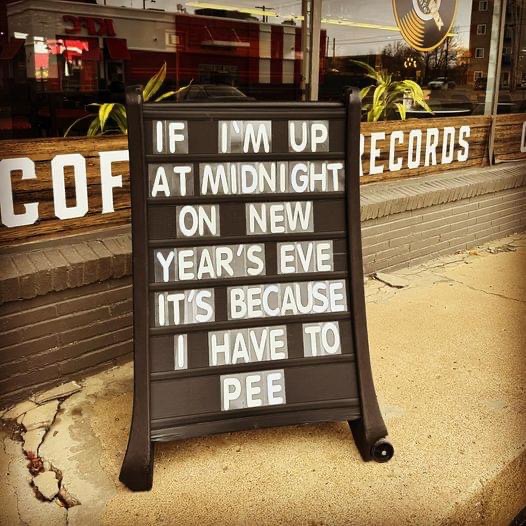 IF I'M UP
AT MIDNIGHT
ON NEW
YEAR'S EVE
IT'S BECAUSE
I HAVE TO
PEE
COF
RECORDS